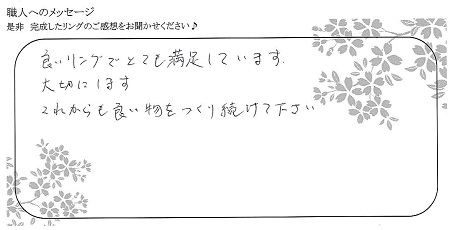 職人へのメッセージ
是非 完成したリングのご感想をお聞かせください♪
良いリングでとても満足しています.
大切にします
これからも良い物をつくり続けて下さい